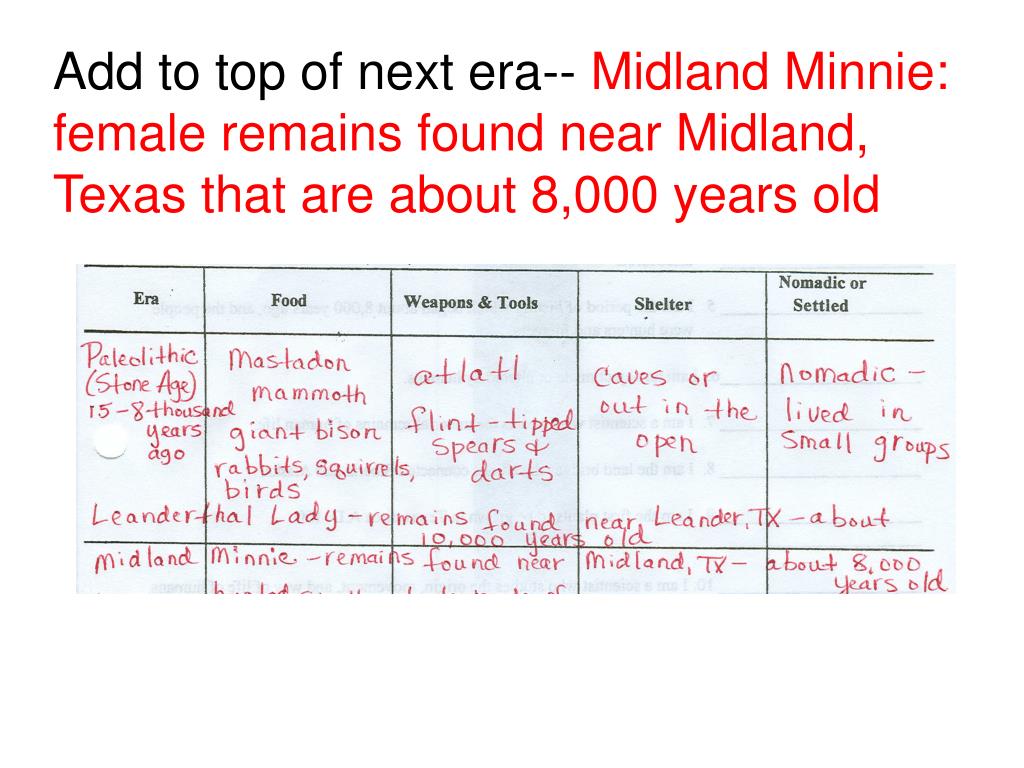 Add to top of next era-- Midland Minnie:
female remains found near Midland,
Texas that are about 8,000 years old
Era Food Weapons & Tools Shelter Nomadic or Settled
Paleolithic
(Stone Age)
15-8 thousand
years
ago
Mastadon
mammoth
giant bison
rabbits, squirrels,
birds
atlatl
flint-tipped
spears &
darts
Caves or
out in the
open
Nomadic -
lived in
small groups
Leanderthal Lady - remains found near Leander, TX - about
10,000 years old
Midland Minnie - remains found near Midland, TX - about 8,000
years old